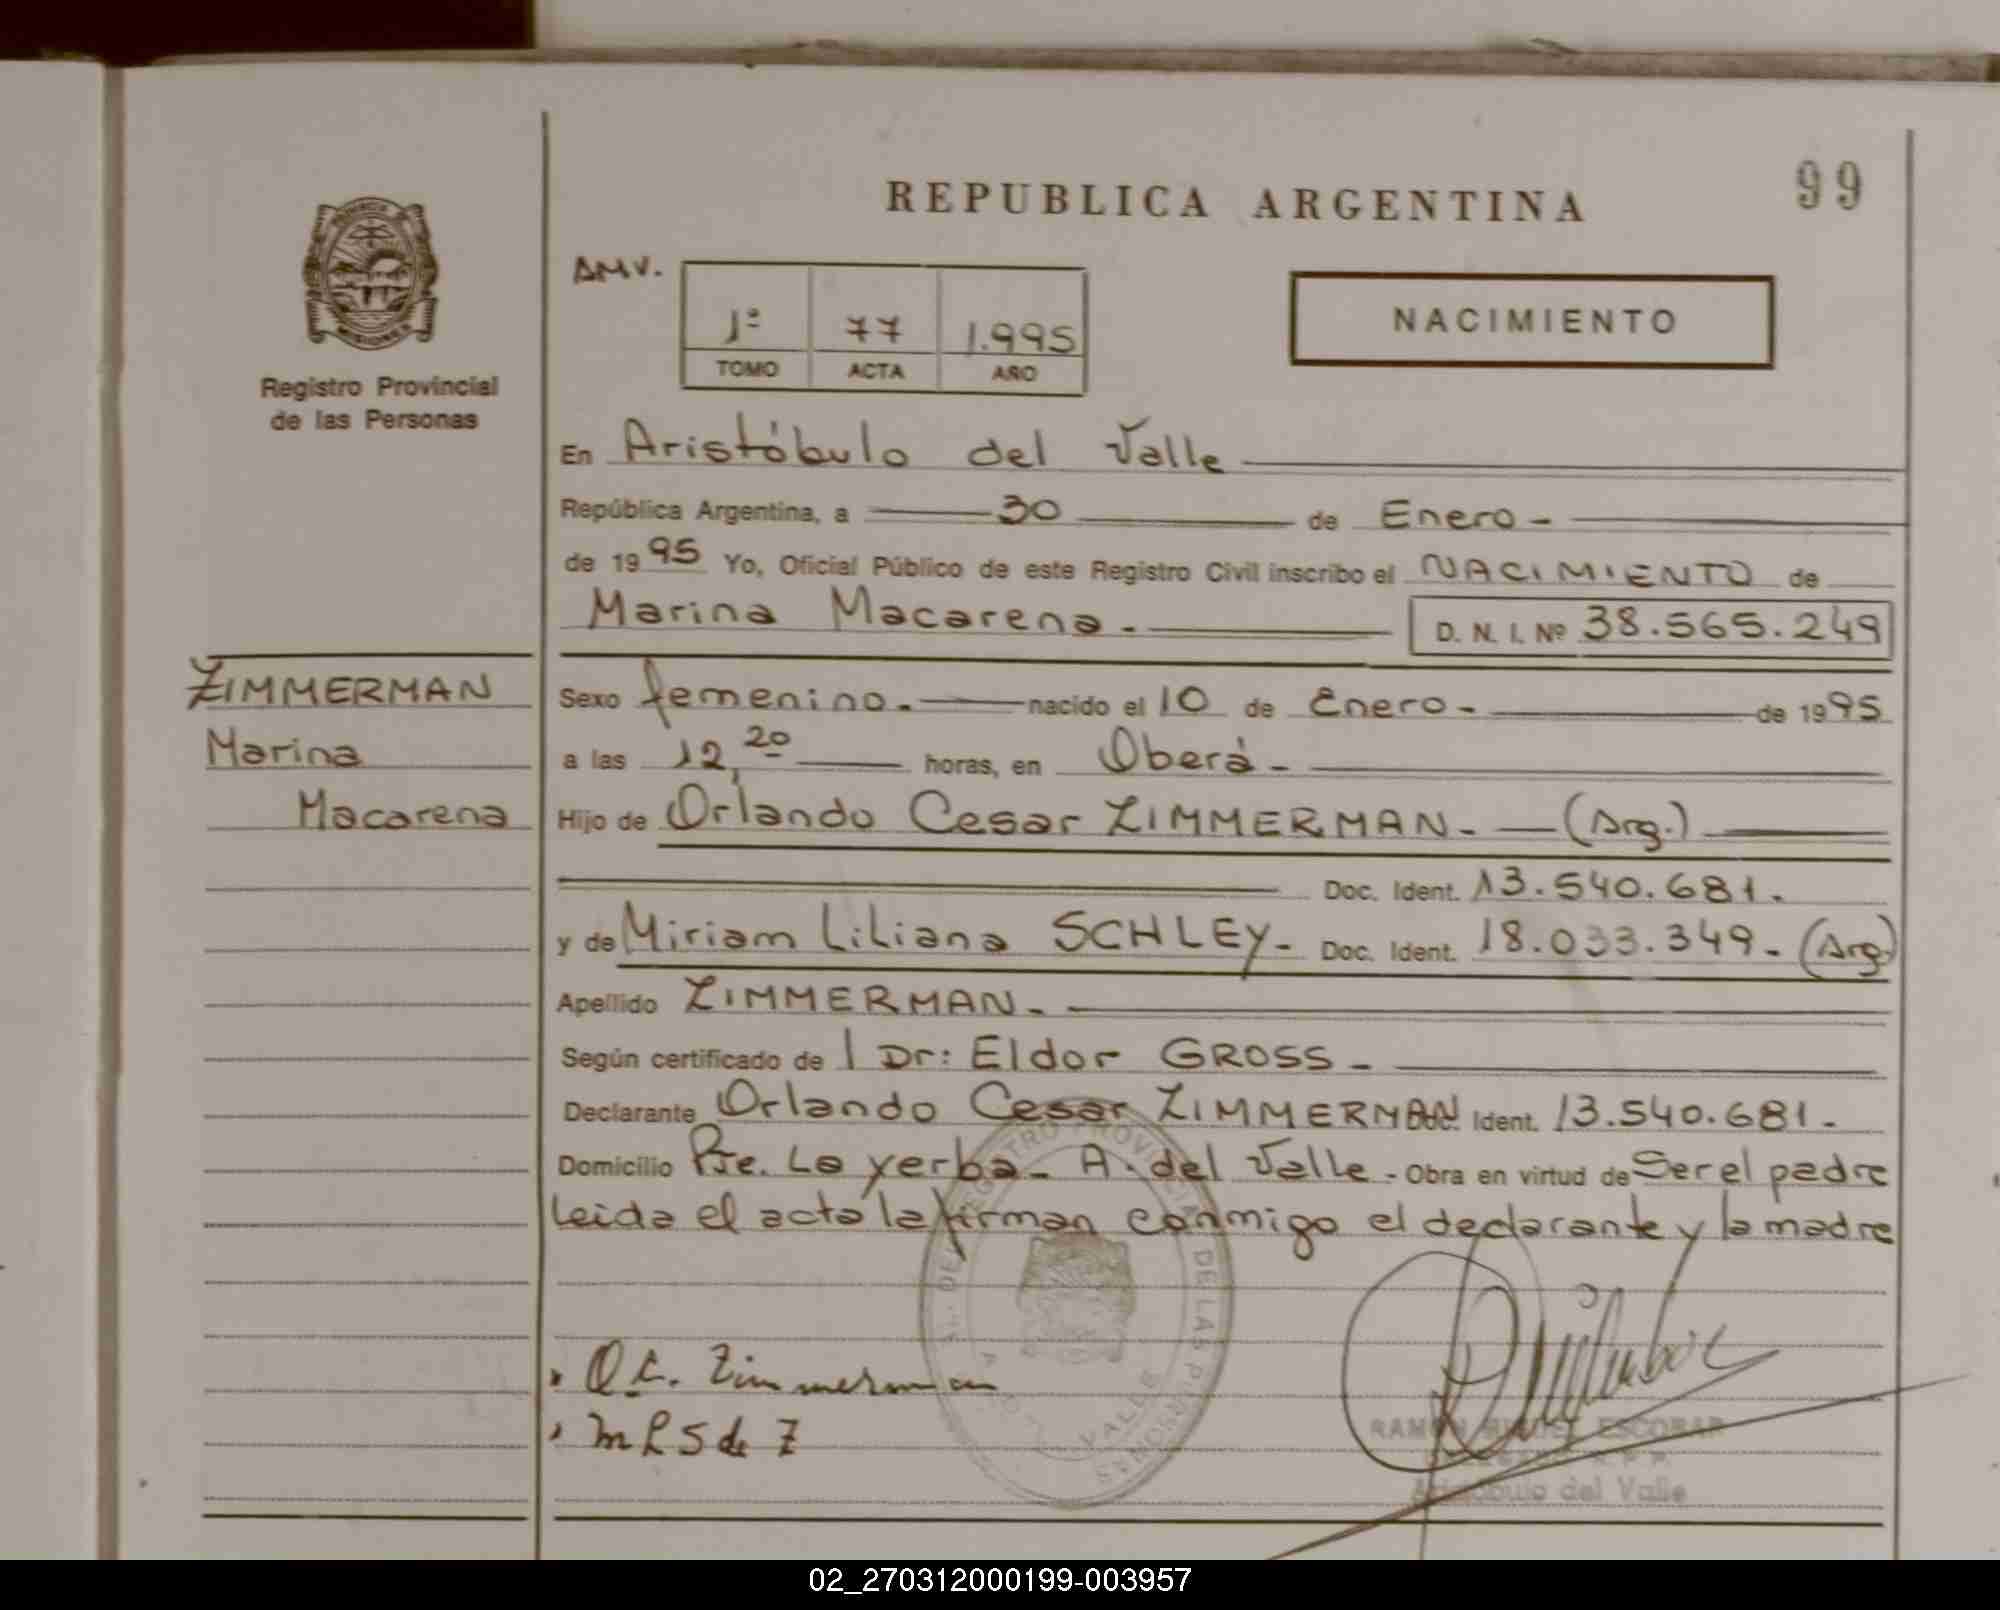 REPUBLICA ARGENTINA
99
PROVINCIA DE
MISIONES
Registro Provincial
de las Personas
AMV.
1º 77 1.995
TOMO ACTA AÑO
NACIMIENTO
En Aristóbulo del Valle
República Argentina, a 30 de Enero-
de 1995 Yo, Oficial Público de este Registro Civil inscribo el NACIMIENTO de
Marina Macarena.- D. N. I. Nº 38.565.249
ZIMMERMAN
Marina
Macarena
Sexo femenino.- nacido el 10 de Enero- de 1995
a las 12,20 horas, en Oberá-
Hijo de Orlando Cesar ZIMMERMAN.- (Arg.)
Doc. Ident. 13.540.681.
y de Miriam Liliana SCHLEY- Doc. Ident. 18.033.349.- (Arg)
Apellido ZIMMERMAN.-
Según certificado de l Dr: Eldor GROSS-
Declarante Orlando Cesar ZIMMERMAN Doc. Ident. 13.540.681.-
Domicilio Pje. La yerba- A. del Valle- Obra en virtud de Ser el padre
leida el acta la firman conmigo el declarante y la madre
O.C. Zimmerman
M L S de Z
RAMON MIGUEL ESCOBAR
Aristóbulo del Valle
REGISTRO PROVINCIAL DE LAS PERSONAS
VALLE
02_270312000199-003957